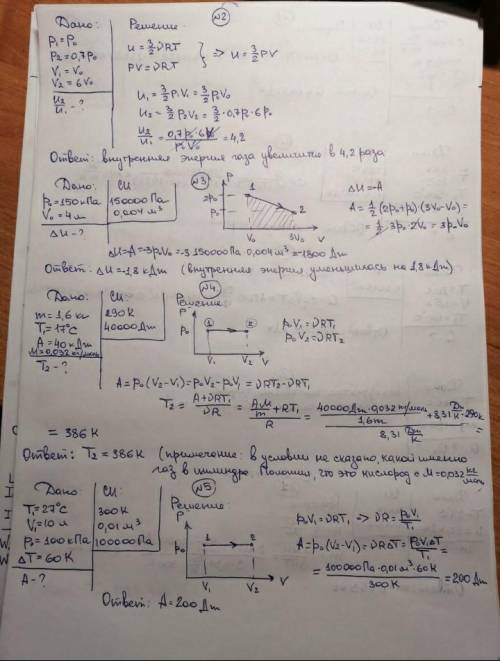 №2
Дано:
P₁=P₀
P₂=0,7P₀
V₁=V₀
V₂=6V₀
U₂/U₁-?
Решение:
U=3/2 νRT
PV=νRT
} ⇒ U=3/2 PV
U₁=3/2 P₁V₁=3/2 P₀V₀
U₂=3/2 P₂V₂=3/2·0,7P₀·6P₀
U₂/U₁=0,7P₀·6V₀/P₀V₀=4,2
Ответ: внутренняя энергия газа увеличится в 4,2 раза
№3
Дано:
P₀=150кПа
V₀=4л
ΔU-?
СИ:
150000Па
0,004м³
P
2P₀
P₀
1
2
V₀
3V₀
V
ΔU=-A
A=1/2(2P₀+P₀)·(3V₀-V₀)=
=1/2·3P₀·2V₀=3P₀V₀
ΔU=-A=-3P₀V₀=-3·150000Па·0,004м³=-1800Дж
Ответ: ΔU=-1,8кДж (внутренняя энергия уменьшилась на 1,8кДж)
№4
Дано:
m=1,6кг
T₁=17°C
A=40кДж
M=0,032кг/моль
T₂-?
СИ:
290К
40000Дж
Решение:
P
P₀
1
2
V₁
V₂
V
P₀V₁=νRT₁
P₀V₂=νRT₂
A=P₀(V₂-V₁)=P₀V₂-P₀V₁=νRT₂-νRT₁
T₂=(A+νRT₁)/νR=(AM/m+RT₁)/R=(40000Дж·0,032кг/моль/1,6кг+8,31Дж/К·290К)/8,31Дж/К=
=386К
Ответ: T₂=386К (примечание: в условии не сказано, какой именно
газ в цилиндре. Положим, что это кислород с M=0,032кг/моль)
№5
Дано:
T₁=27°C
V₁=10л
P₀=100кПа
ΔT=60К
A-?
СИ:
300К
0,01м³
100000Па
Решение:
P
P₀
1
2
V₁
V₂
V
P₀V₁=νRT₁ ⇒ νR=P₀V₁/T₁
A=P₀(V₂-V₁)=νRΔT=P₀V₁ΔT/T₁=
=100000Па·0,01м³·60К/300К=200Дж
Ответ: A=200Дж